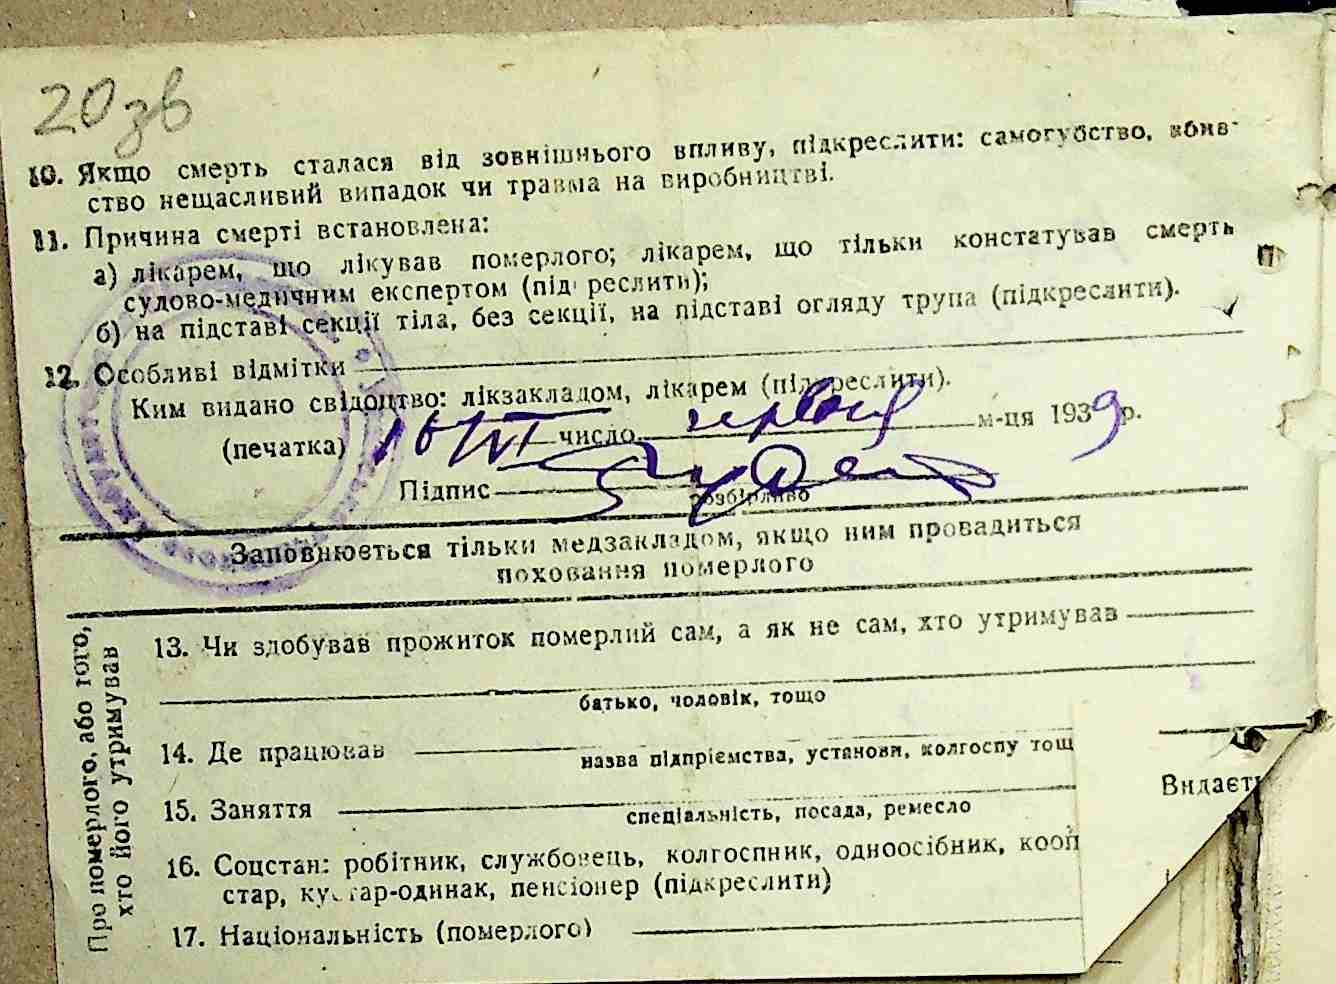 20зв
10. Якщо смерть сталася від зовнішнього впливу, підкреслити: самогубство, вбив-
ство нещасливий випадок чи травма на виробництві.
11. Причина смерті встановлена:
а) лікарем, що лікував померлого; лікарем, що тільки констатував смерть
судово-медичним експертом (під реслити);
б) на підставі секції тіла, без секції, на підставі огляду трупа (підкреслити).
12. Особливі відмітки
Ким видано свідоцтво: лікзакладом, лікарем (підкреслити).
(печатка) 16/VI число червня м-ця 1939 р.
Підпис
розбірливо
Заповнюється тільки медзакладом, якщо ним провадиться
поховання померлого
Про померлого, або того,
хто його утримував
13. Чи здобував прожиток померлий сам, а як не сам, хто утримував
батько, чоловік, тощо
14. Де працював
назва підприємства, установи, колгоспу тощ
15. Заняття
спеціальність, посада, ремесло
16. Соцстан: робітник, службовець, колгоспник, одноосібник, кооп
стар, кустар-одинак, пенсіонер (підкреслити)
17. Національність (померлого)
Видаєть